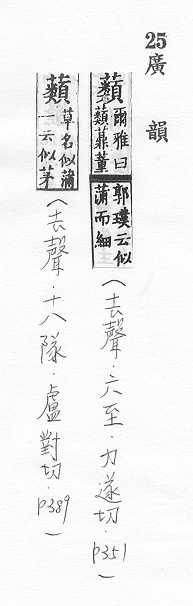 25 廣韻
蘱 爾雅曰蘱薡蕫郭璞云似蒲而細 (去聲.六至.力遂切.p351)
蘱 草名似蒲一云似茅 (去聲.十八隊.盧對切.p389)